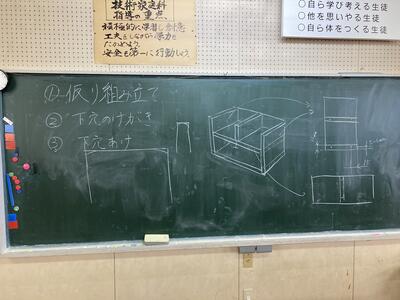 技術家庭科
指導の重点
積極的に学習し創意
工夫をしながら学力を
たかめよう
安全を第一に行動しよう
○自ら学び考える生徒
○他を思いやる生徒
○自ら体をつくる生徒
①仮り組み立て
②下穴のけがき
③下穴あけ